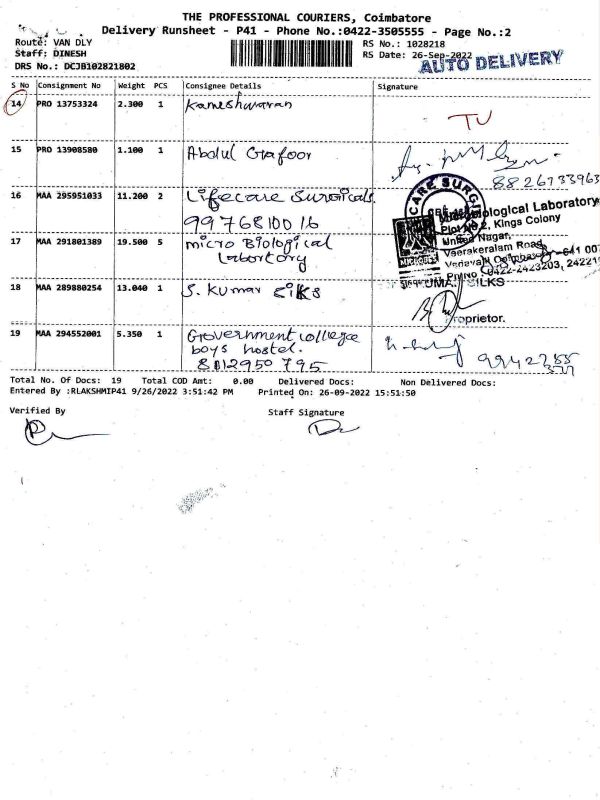 THE PROFESSIONAL COURIERS, Coimbatore
Delivery Runsheet - P41 - Phone No.:0422-3505555 - Page No.:2
Route: VAN DLY
Staff: DINESH
DRS No.: DCJB102821802
RS No.: 1028218
RS Date: 26-Sep-2022
AUTO DELIVERY
S No Consignment No Weight PCS Consignee Details Signature
14 PRO 13753324 2.300 1 Kameshwaran
TU
15 PRO 13908580 1.100 1 Abdul Gafoor
8826733963
16 MAA 295951033 11.200 2 Lifecare Surgicals
9976810016
CARE SURGI
17 MAA 291801389 19.500 5 micro Biological
Labortory
Microbiological Laboratory
Plot No 2, Kings Colony
United Nagar,
Veerakeralam Road,
0422-2423203,
18 MAA 289880254 13.040 1 S. Kumar Silks
UMA SILKS
Proprietor.
19 MAA 294552001 5.350 1 Government college
boys hostel.
8012950795
Total No. Of Docs: 19 Total COD Amt: 0.00 Delivered Docs: Non Delivered Docs:
Entered By :RLAKSHMIP41 9/26/2022 3:51:42 PM Printed On: 26-09-2022 15:51:50
Verified By Staff Signature